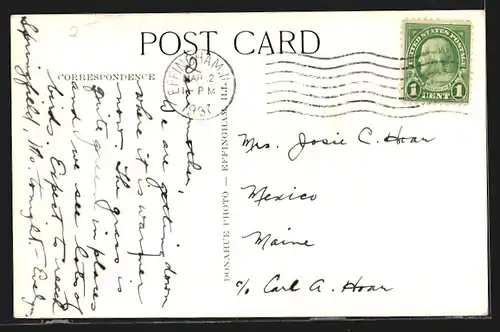 2
POST CARD
CORRESPONDENCE
EFFINGHAM, ILL.
MAR 2
PM
1931
UNITED STATES POSTAGE
FRANKLIN
1 CENT 1
Dear Mother,
We are getting down
where it is warmer
now. The grass is
quite green in places
and we see lots of
birds. Expect to reach
Springfield, Mo. tonight. – Evelyn.
DONAHUE PHOTO — EFFINGHAM ILL.
Mrs. Josie C. Hoar
Mexico
Maine
c/o Carl A. Hoar